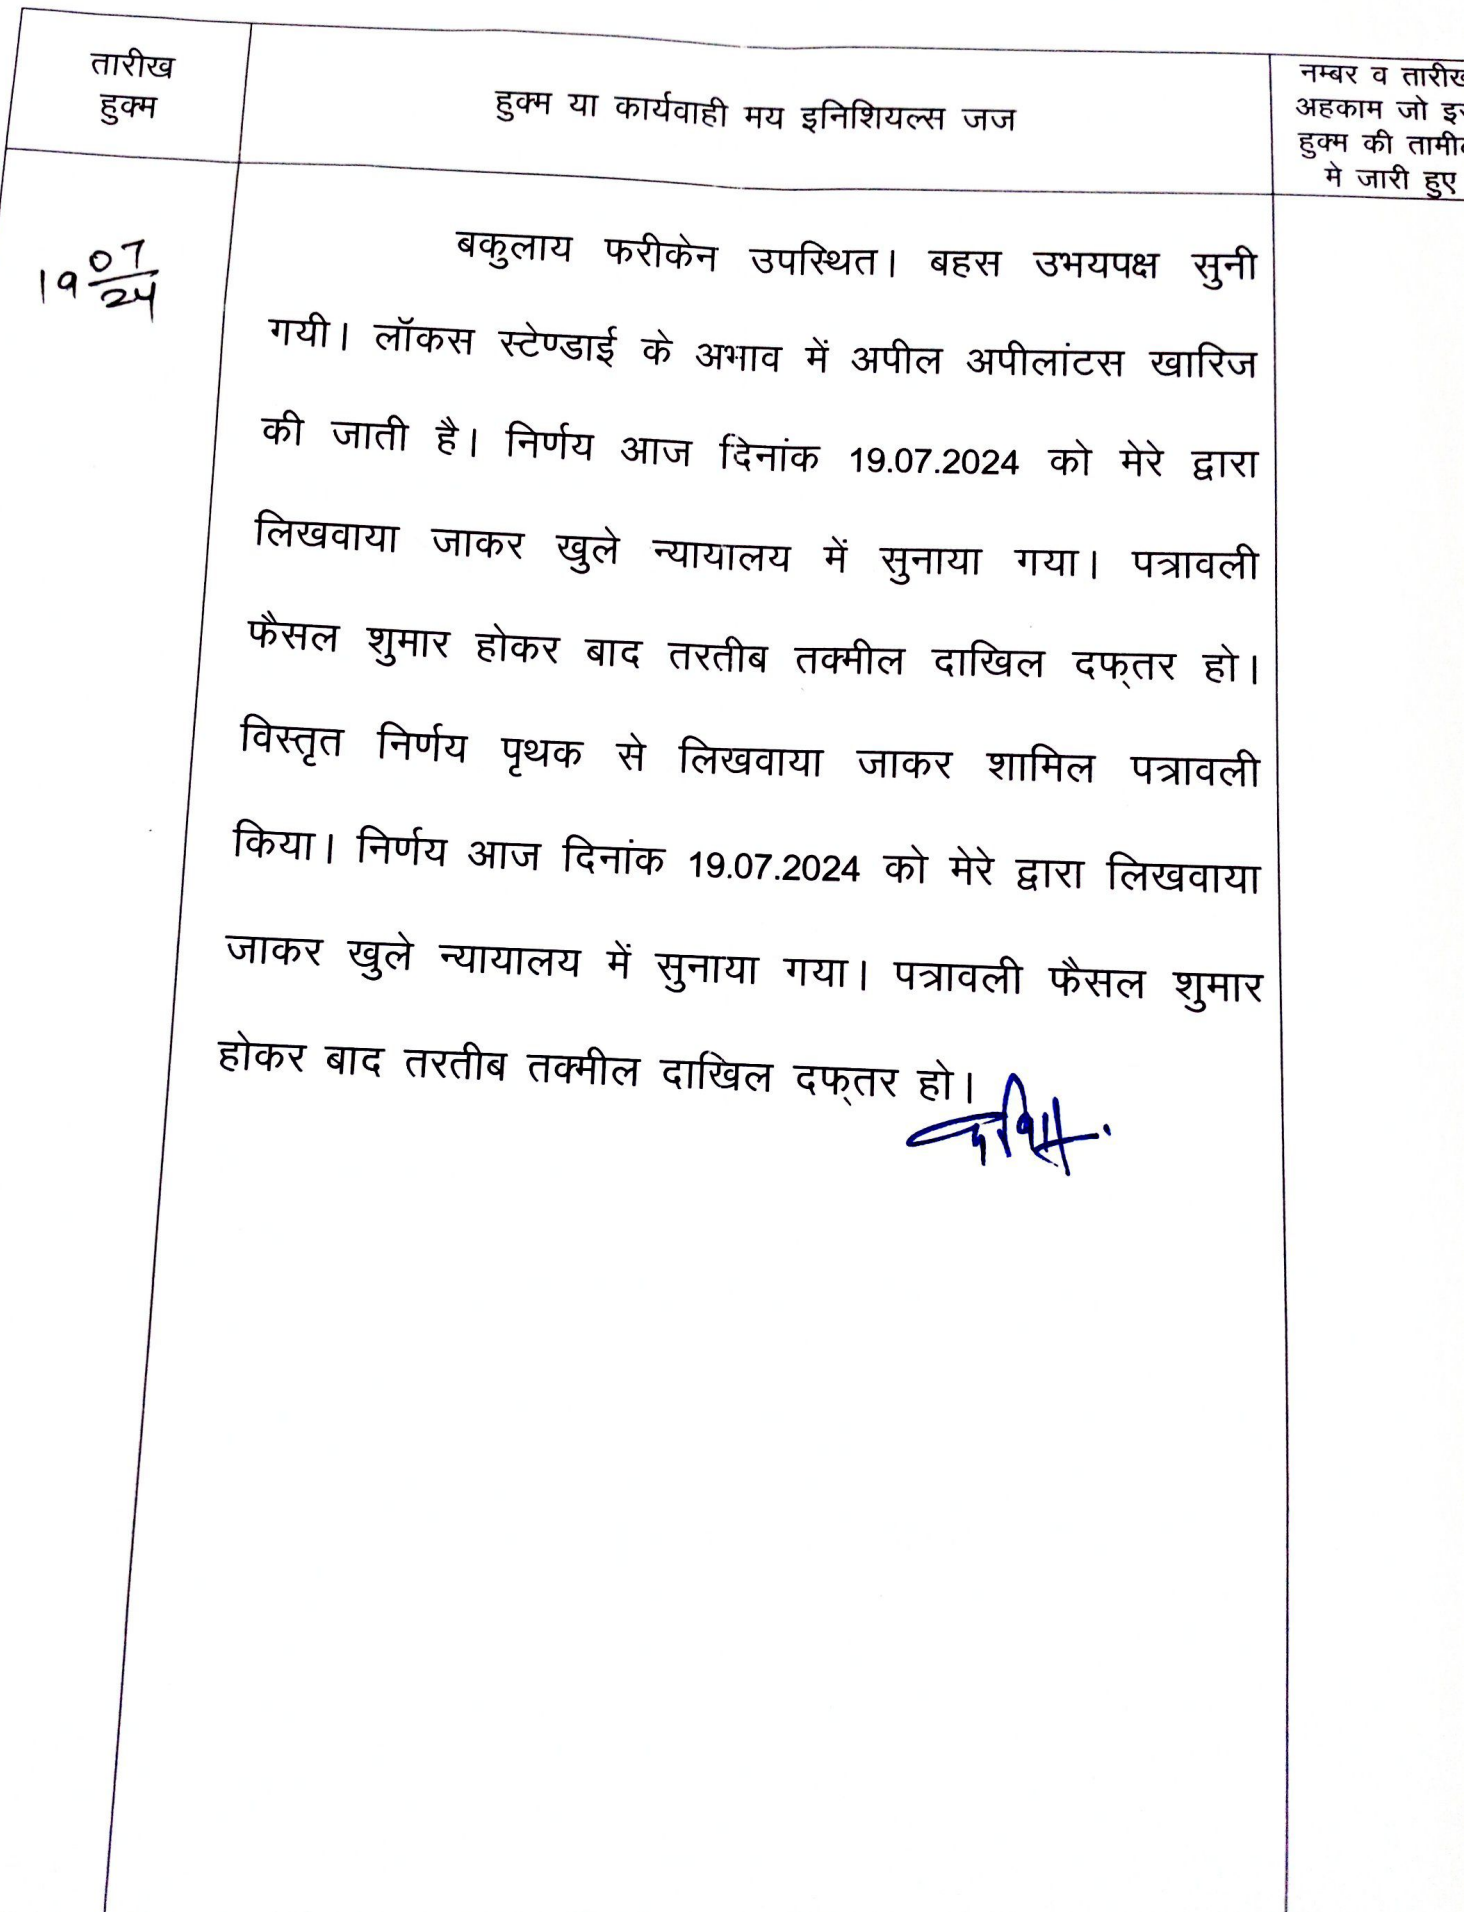 तारीख
हुक्म
हुक्म या कार्यवाही मय इनिशियल्स जज
नम्बर व तारीख
अहकाम जो
हुक्म की
मे जारी हुए
19 07/24
बकुलाय फरीकेन उपस्थित। बहस उभयपक्ष सुनी
गयी। लॉकस स्टेण्डाई के अभाव में अपील अपीलांटस खारिज
की जाती है। निर्णय आज दिनांक 19.07.2024 को मेरे द्वारा
लिखवाया जाकर खुले न्यायालय में सुनाया गया। पत्रावली
फैसल शुमार होकर बाद तरतीब तक्मील दाखिल दफ्तर हो।
विस्तृत निर्णय पृथक से लिखवाया जाकर शामिल पत्रावली
किया। निर्णय आज दिनांक 19.07.2024 को मेरे द्वारा लिखवाया
जाकर खुले न्यायालय में सुनाया गया। पत्रावली फैसल शुमार
होकर बाद तरतीब तक्मील दाखिल दफ्तर हो।